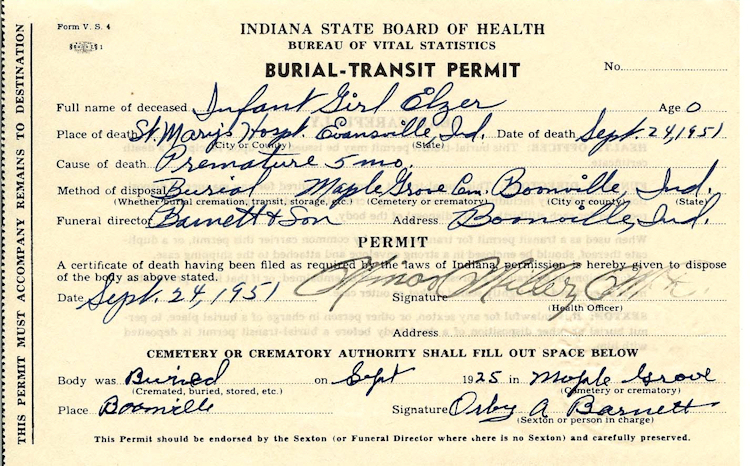 Form V. S. 4
INDIANA STATE BOARD OF HEALTH
BUREAU OF VITAL STATISTICS
BURIAL-TRANSIT PERMIT
No.
Full name of deceased Infant Girl Elzer Age 0
Place of death St. Mary's Hospt. Evansville, Ind. Date of death Sept. 24, 1951
(City or County) (State)
Cause of death Premature 5 mo.
Method of disposal Burial Maple Grove Cem. Boonville, Ind.
(Whether burial, cremation, transit, storage, etc.) (Cemetery or crematory) (City or county) (State)
Funeral director Barnett & Son Address Boonville, Ind.
PERMIT
A certificate of death having been filed as required by the laws of Indiana permission is hereby given to dispose
of the body as above stated.
Date Sept. 24, 1951 Signature Miller
(Health Officer)
Address
CEMETERY OR CREMATORY AUTHORITY SHALL FILL OUT SPACE BELOW
Body was Buried on Sept 1925 in Maple Grove
(Cremated, buried, stored, etc.) (Cemetery or crematory)
Place Boonville Signature Orby A Barnett
(Sexton or person in charge)
This Permit should be endorsed by the Sexton (or Funeral Director where there is no Sexton) and carefully preserved.
THIS PERMIT MUST ACCOMPANY REMAINS TO DESTINATION